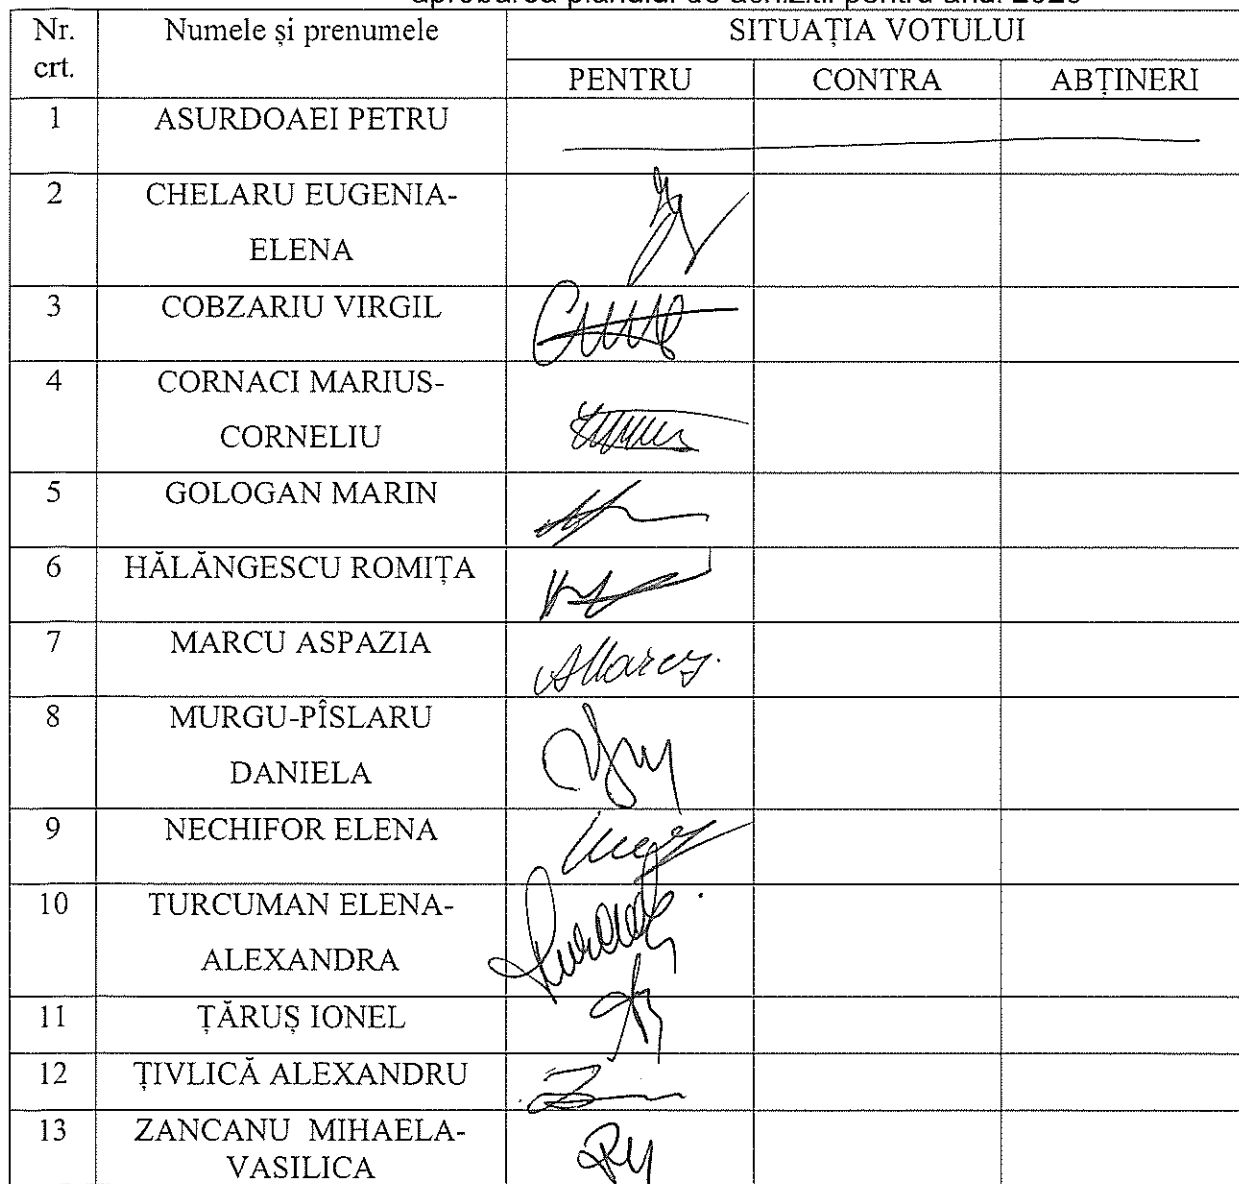 aprobarea planului de achiziții pentru anul 2020
Nr. crt. Numele și prenumele SITUAȚIA VOTULUI
PENTRU CONTRA ABȚINERI
1 ASURDOAEI PETRU
2 CHELARU EUGENIA-
ELENA
3 COBZARIU VIRGIL
4 CORNACI MARIUS-
CORNELIU
5 GOLOGAN MARIN
6 HĂLĂNGESCU ROMIȚA
7 MARCU ASPAZIA
AMarcu
8 MURGU-PÎSLARU
DANIELA
9 NECHIFOR ELENA
10 TURCUMAN ELENA-
ALEXANDRA
11 ȚĂRUȘ IONEL
12 ȚIVLICĂ ALEXANDRU
13 ZANCANU MIHAELA-
VASILICA